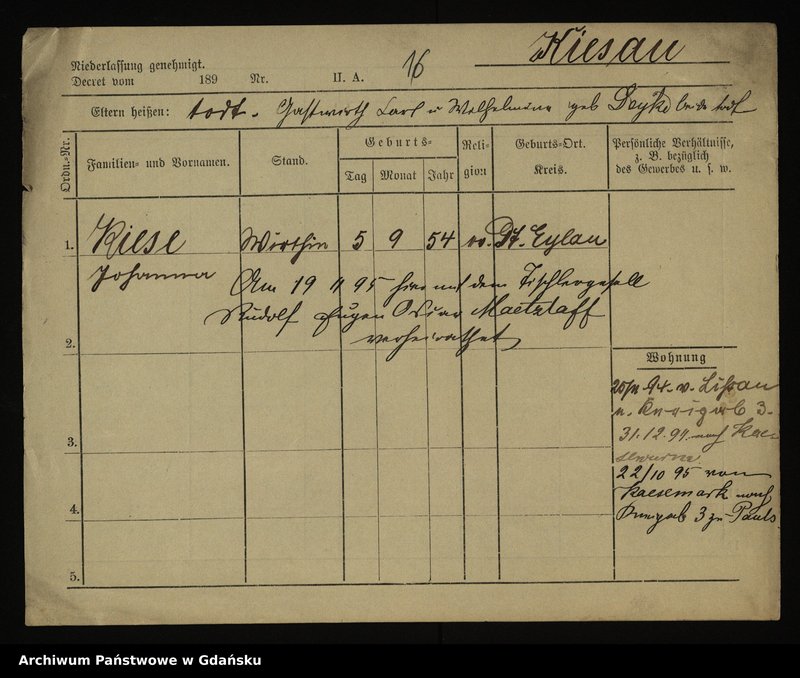 Kiesau
Niederlassung genehmigt.
Decret vom 189 Nr. II. A. 16
Eltern heißen: todt. Gastwirth Carl u Wilhelmine geb beide todt
Ordn.-Nr. Familien- und Vornamen. Stand. Geburts- Reli- Geburts-Ort. Persönliche Verhältnisse,
Tag Monat Jahr gion Kreis. z. B. bezüglich
des Gewerbes u. s. w.
1. Kiese Wirthin 5 9 54 ev. Dt. Eylau
Johanna Am 19 11 95 hier mit dem Tischlergesell
Rudolf Eugen Oscar Maetzlaff
verheirathet
2.
Wohnung
94. v. Lissau
n. Kneipab 3.
31.12.94 nach Kae-
3.
22/10 95 von
Kaesemark nach
4. Kneipab 3 zu Pauls
5.
Archiwum Państwowe w Gdańsku